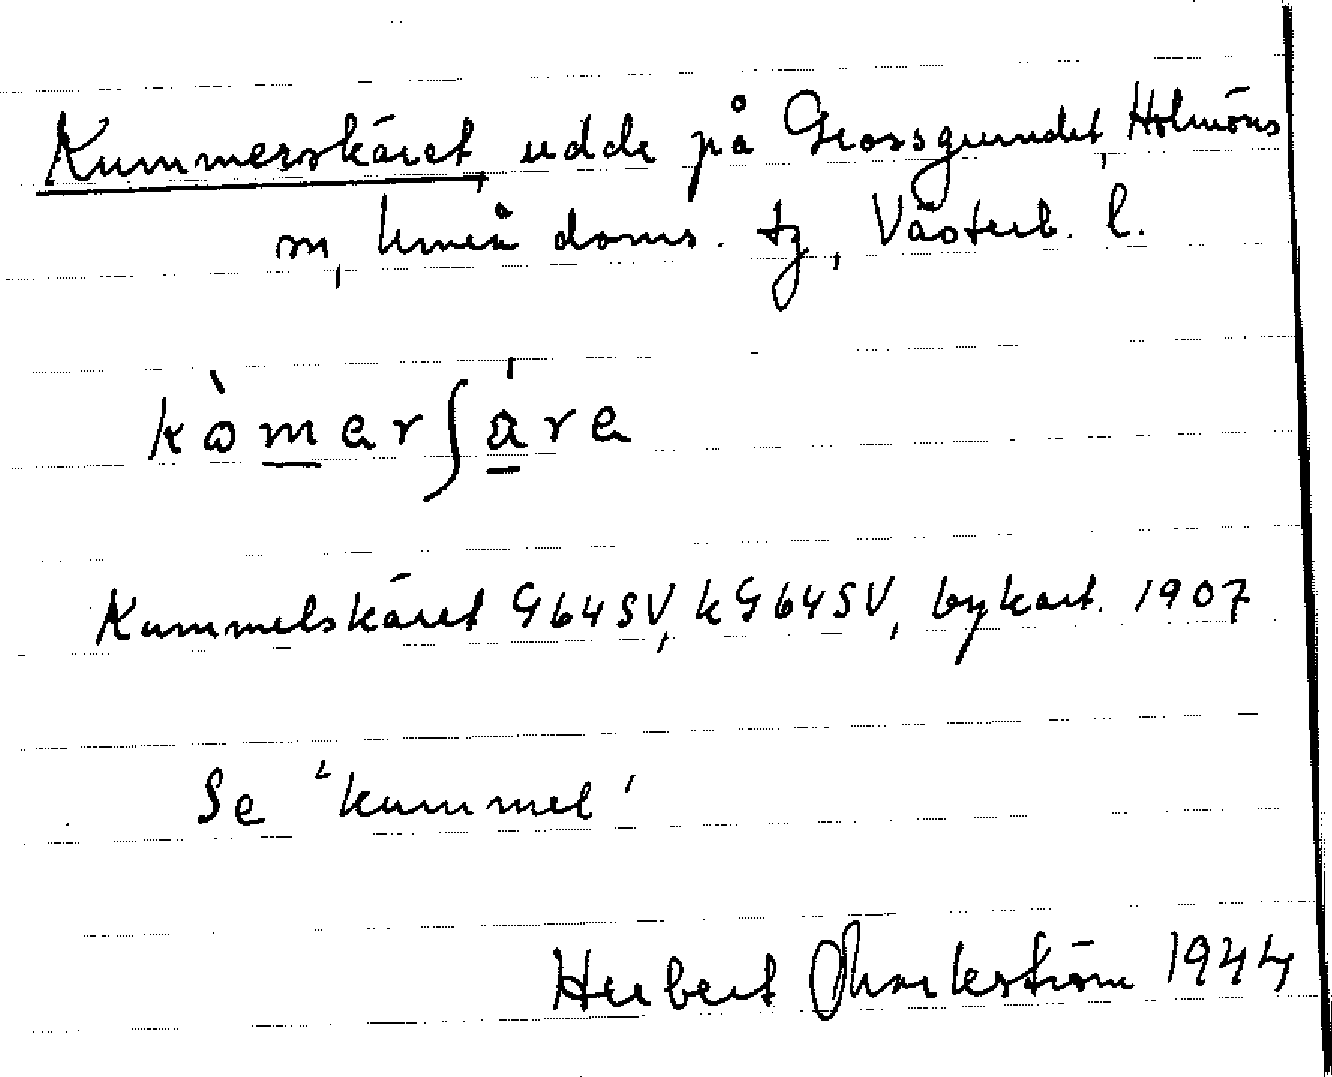 Kummerskäret, udde på Grossgrundet, Holmöns
sn, Umeå doms. tg, Västerb. l.
kòmerʃáre
Kummelskäret G64SV, kG64SV, bykart. 1907
Se 'kummel'
Herbert Markström 1944